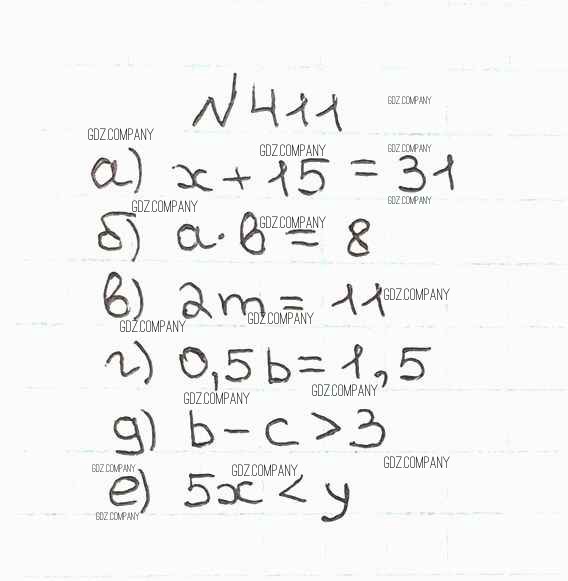 №411
GDZ.COMPANY
GDZ.COMPANY
GDZ.COMPANY GDZ.COMPANY
а) x + 15 = 31
GDZ.COMPANY GDZ.COMPANY
GDZ.COMPANY
б) a · b = 8
в) 2m = 11 GDZ.COMPANY
GDZ.COMPANY GDZ.COMPANY
г) 0,5b = 1,5
GDZ.COMPANY GDZ.COMPANY
д) b - c > 3
GDZ.COMPANY GDZ.COMPANY GDZ.COMPANY
е) 5x < y
GDZ.COMPANY